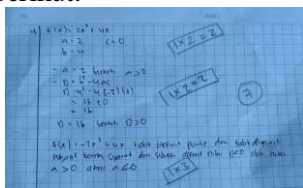 f(x) = 2x² + 4x
a = 2 c = 0
b = 4
1x2 = 2
- a = 2 berarti a > 0
- D = b² - 4ac
D = 4² - 4 (2) (0)
= 16 + 0
= 16
1x2 = 2
D = 16 berarti D > 0
7
f(x) = 2x² + 4x tidak definit positif dan tidak definit
negatif karena syarat dan definit nilai D < 0 dan nilai
a > 0 atau a < 0
1x3